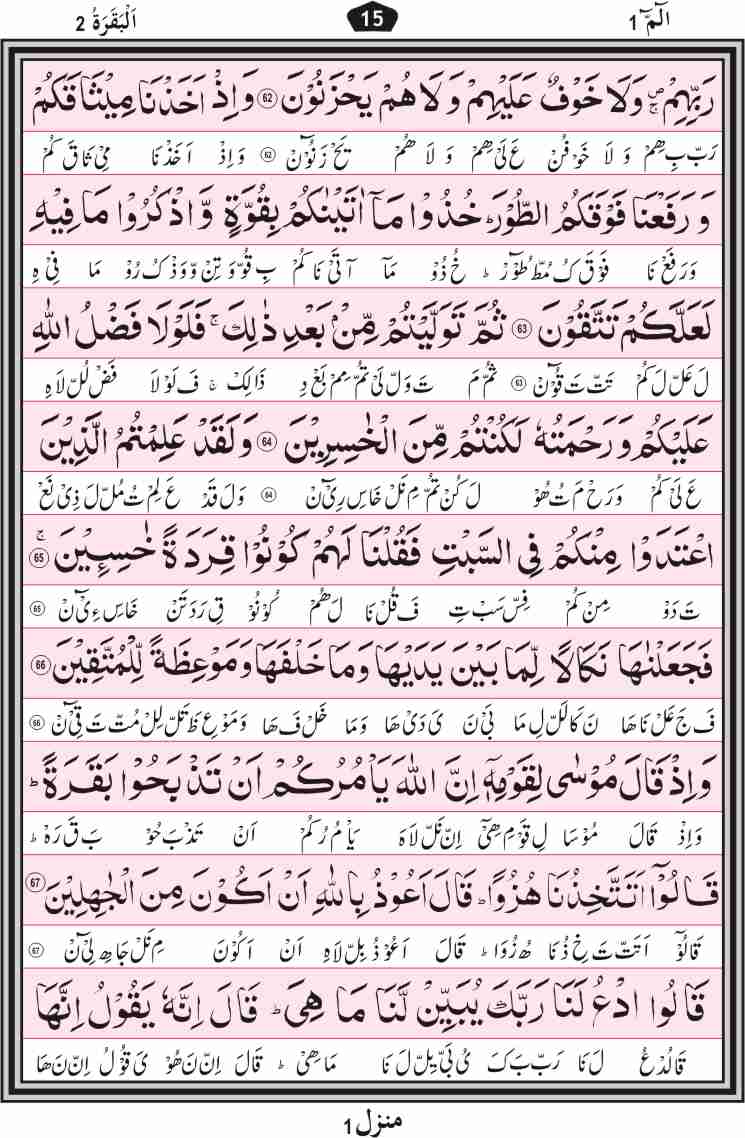 الٓمّٓ 1 15 اَلْبَقَرَةُ 2
رَبِّهِمْ ۪ۚ وَلَا خَوْفٌ عَلَيْهِمْ وَلَا هُمْ يَحْزَنُوْنَ ۝62 وَاِذْ اَخَذْنَا مِيْثَاقَكُمْ
رَبّ بِ هِمْ وَ لَا خَوْ فُنْ عَ لَىْ هِمْ وَ لَا هُمْ يَحْ زَ نُوْٓنْ ۝62 وَ اِذْ اَ خَذْ نَا مِىْ ثَا قَ كُمْ
وَرَفَعْنَا فَوْقَكُمُ الطُّوْرَ ؕ خُذُوْا مَآ اٰتَيْنٰكُمْ بِقُوَّةٍ وَّاذْكُرُوْا مَا فِيْهِ
وَ رَ فَعْ نَا فَوْ قَ كُ مُطّ طُوْٓرْ ؕ خُ ذُوْ مَآ آ تَىْ نَا كُمْ بِ قُوّ وَ تِنْ وّ وَذْ كُ رُوْ مَا فِىْ هِ
لَعَلَّكُمْ تَتَّقُوْنَ ۝63 ثُمَّ تَوَلَّيْتُمْ مِّنْۢ بَعْدِ ذٰلِكَ ۚ فَلَوْلَا فَضْلُ اللّٰهِ
لَ عَلّ لَ كُمْ تَتّ تَ قُوْٓنْ ۝63 ثُمّ مَ تَ وَلّ لَىْ تُمّ مِمْ بَعْ دِ ذَا لِكْ ۚ فَ لَوْ لَا فَضْ لُلّ لَاهِ
عَلَيْكُمْ وَرَحْمَتُهٗ لَكُنْتُمْ مِّنَ الْخٰسِرِيْنَ ۝64 وَلَقَدْ عَلِمْتُمُ الَّذِيْنَ
عَ لَىْ كُمْ وَ رَحْ مَ تُ هُوْ لَ كُنْ تُمّ مِ نَلْ خَا سِ رِىْٓنْ ۝64 وَ لَ قَدْ عَ لِمْ تُ مُلّ لَ ذِىْ نَعْ
اعْتَدَوْا مِنْكُمْ فِى السَّبْتِ فَقُلْنَا لَهُمْ كُوْنُوْا قِرَدَةً خٰسِـِٕيْنَ ۚ۝65
تَ دَوْ مِنْ كُمْ فِسّ سَبْ تِ فَ قُلْ نَا لَ هُمْ كُوْ نُوْ قِ رَ دَ تَنْ خَا سِ ءِىْٓنْ ۝65
فَجَعَلْنٰهَا نَكَالًا لِّمَا بَيْنَ يَدَيْهَا وَمَا خَلْفَهَا وَمَوْعِظَةً لِّلْمُتَّقِيْنَ ۝66
فَ جَ عَلْ نَا هَا نَ كَا لَلّ لِ مَا بَىْ نَ ىَ دَىْ هَا وَ مَا خَلْ فَ هَا وَ مَوْ عِ ظَ تَلّ لِلْ مُتّ تَ قِىْٓنْ ۝66
وَاِذْ قَالَ مُوْسٰى لِقَوْمِهٖٓ اِنَّ اللّٰهَ يَاْمُرُكُمْ اَنْ تَذْبَحُوْا بَقَرَةً ؕ
وَ اِذْ قَالَ مُوْ سَا لِ قَوْ مِ هِىْٓ اِنّ نَلّ لَاهَ يَاْ مُ رُ كُمْ اَنْ تَذْ بَ حُوْ بَ قَ رَهْ ؕ
قَالُوْٓا اَتَتَّخِذُنَا هُزُوًا ؕ قَالَ اَعُوْذُ بِاللّٰهِ اَنْ اَكُوْنَ مِنَ الْجٰهِلِيْنَ ۝67
قَالُوْٓ اَ تَتّ تَ خِ ذُ نَا هُ زُ وَا ؕ قَالَ اَ عُوْ ذُ بِلّ لَاهِ اَنْ اَ كُوْنَ مِ نَلْ جَا هِ لِىْٓنْ ۝67
قَالُوا ادْعُ لَنَا رَبَّكَ يُبَيِّنْ لَّنَا مَا هِىَ ؕ قَالَ اِنَّهٗ يَقُوْلُ اِنَّهَا
قَا لُدْ عُ لَ نَا رَبّ بَ كَ ىُ بَىّ يِلّ لَ نَا مَا هِىْ ؕ قَالَ اِنّ نَ هُوْ ىَ قُوْلُ اِنّ نَ هَا
منزل 1